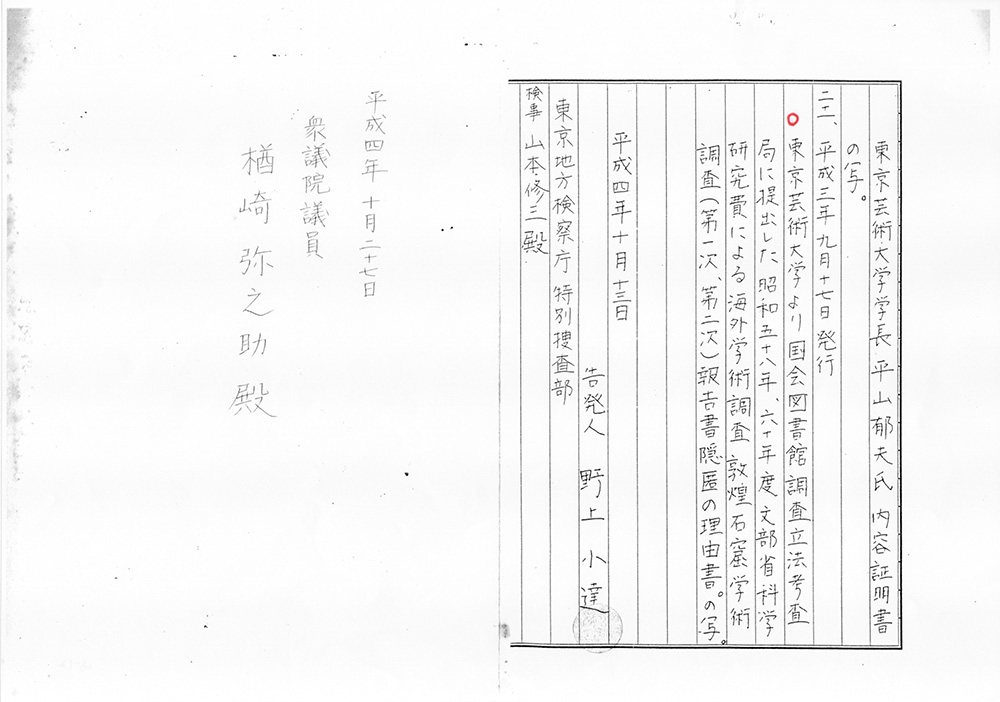 東京芸術大学学長 平山郁夫氏 内容証明書
の写。
二十一、平成三年九月十七日 発行
東京芸術大学より国会図書館調査立法考査
局に提出した昭和五十八年、六十年度文部省科学
研究費による海外学術調査 敦煌石窟学術
調査(第一次、第二次)報告書隠匿の理由書。の写。
平成四年十月十三日
告発人 野上小達
東京地方検察庁 特別捜査部
検事 山本修三殿
平成四年十月二十七日
衆議院議員
楢崎弥之助殿